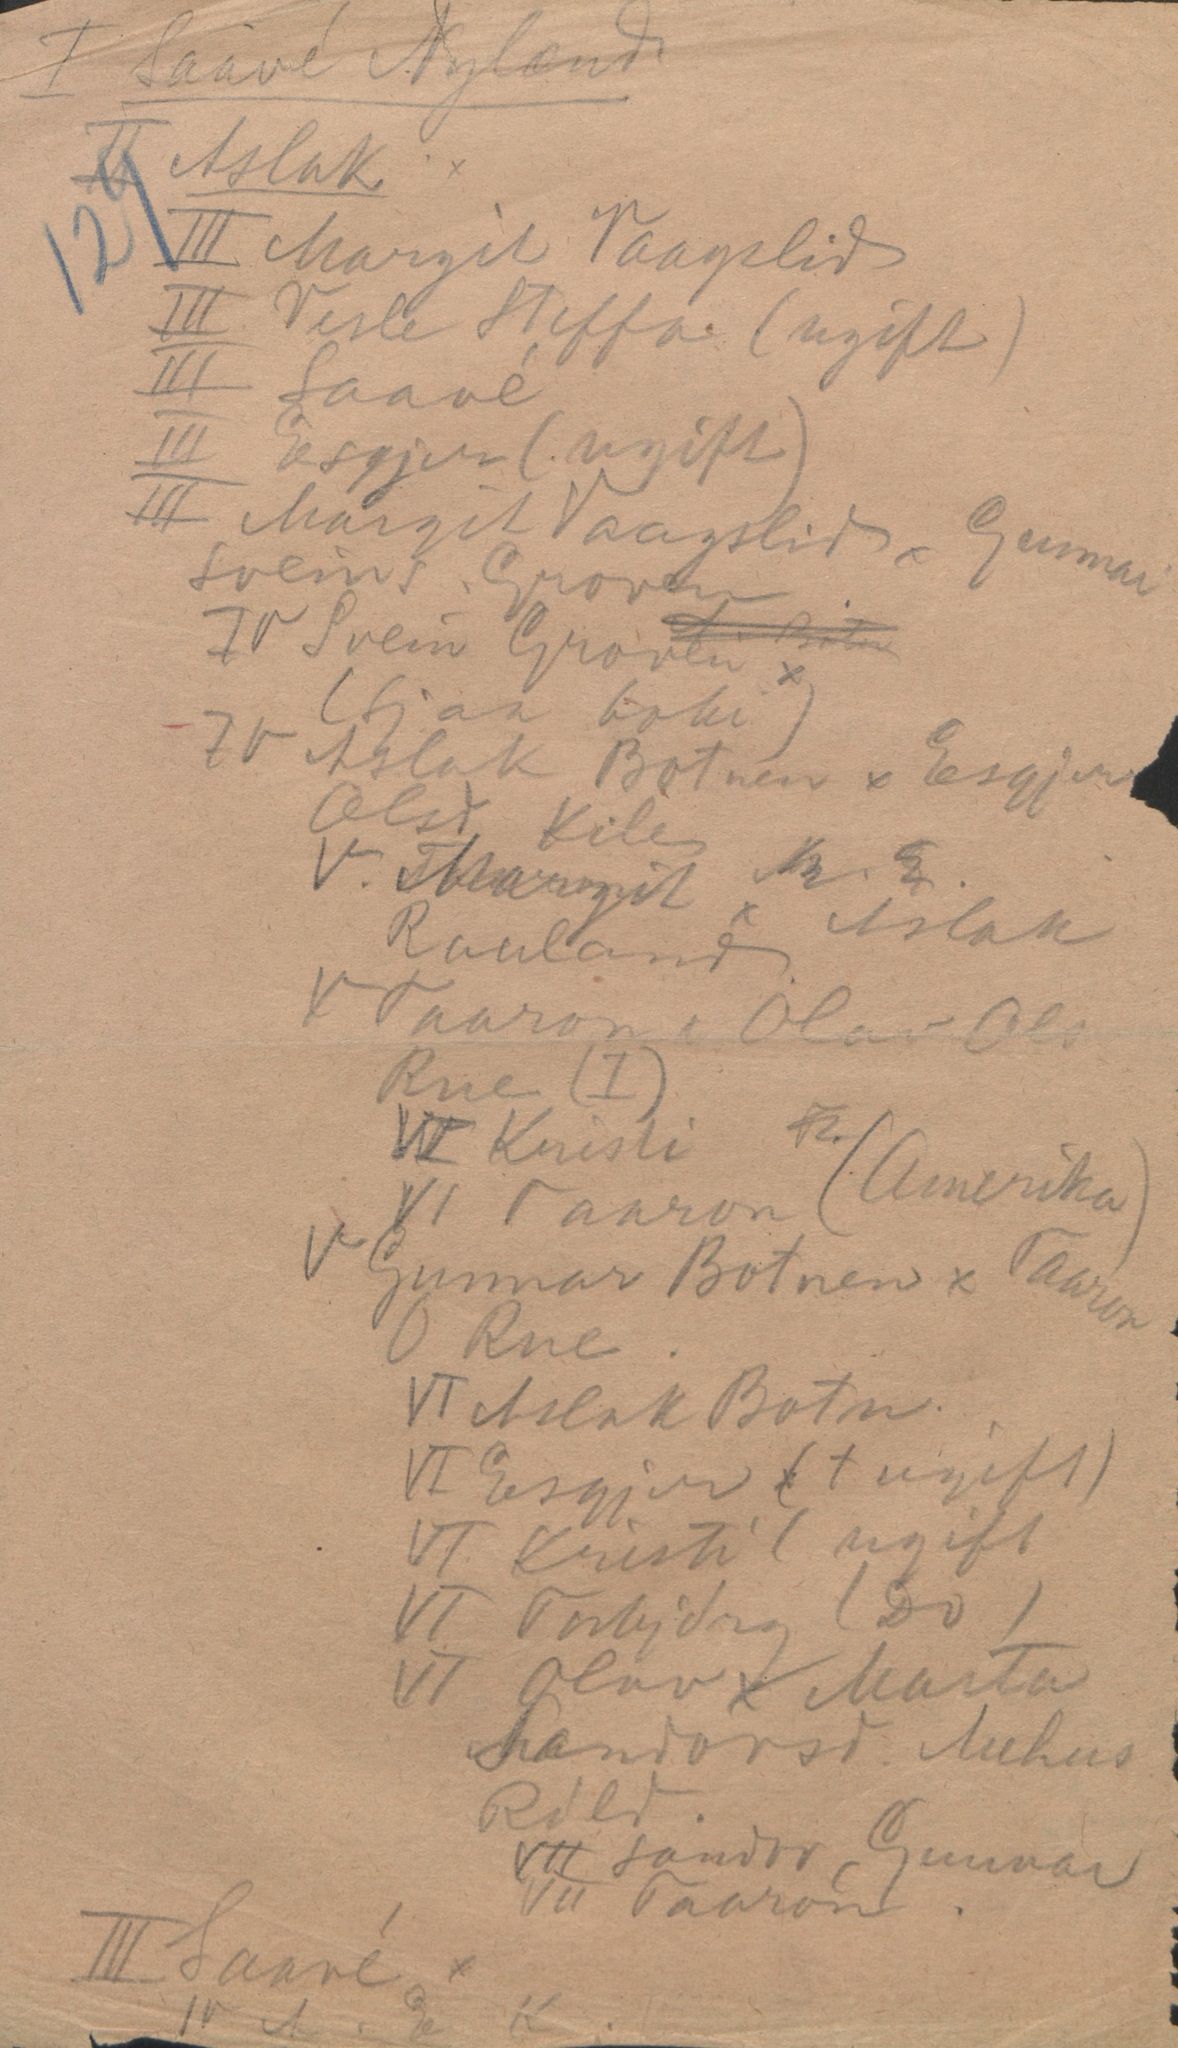 I Saavé Nyland
II Aslak x
129
III Margit Vaagslid
III Vesle Steffa (ugift)
III Saavé
III Esgjer (ugift)
III Margit Vaagslid x Gunnar
Sveins. Groven
IV Svein Groven x
(Sjaa boki)
IV Aslak Botnen x Esgjer
Olsd Kile
V. Margit x Aslak
Rauland
V Taaron x Olav Ols
Rue (I)
VI Kristi
VI Taaron (Amerika)
V Gunnar Botnen x Taaron
O Rue.
VI Aslak Botn.
VI Esgjer (+ ugift)
VI Kristi (ugift
VI Torbjörg (Do)
VI Olav x Marta
Sandovsd. Mehus
Röld.
VII Sandov, Gunnar
VII Taaron.
III Saavé x
IV A. E K.